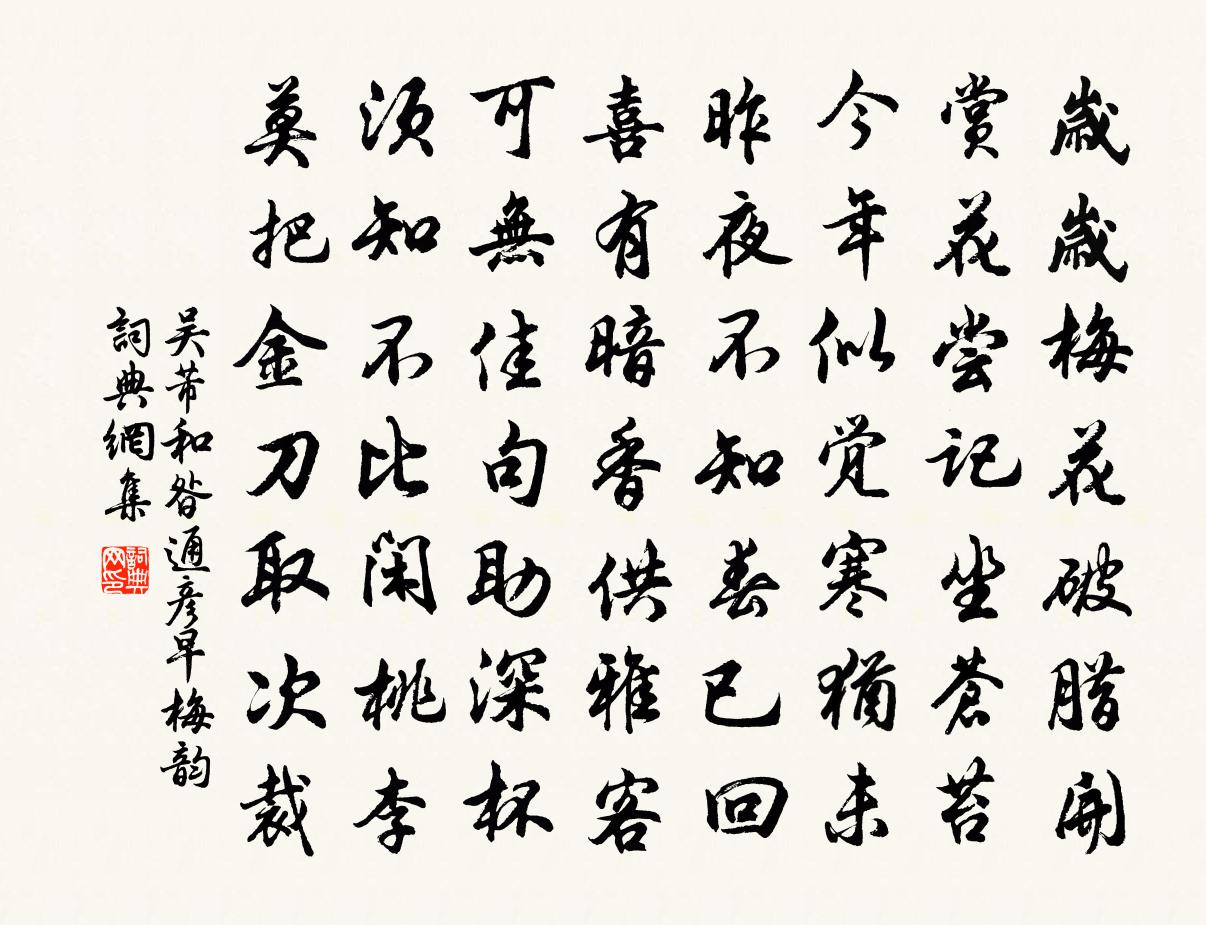 歲歲梅花破腊開
賞花尝記坐蒼苔
今年似觉寒猶未
昨夜不知春已回
喜有暗香供雅客
可無佳句助深杯
須知不比閑桃李
莫把金刀取次裁
吴芾和昝通彦早梅韵
詞典網集
詞典网印